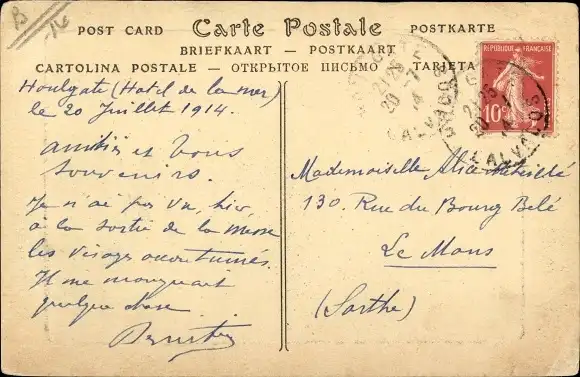 POST CARD Carte Postale POSTKARTE
BRIEFKAART — POSTKAART
CARTOLINA POSTALE — ОТКРЫТОЕ ПИСЬМО — TARJETA
Houlgate (Hotel de la mer)
le 20 Juillet 1914.
Amitiés et bons
souvenirs.
Je n'ai pas vu, hier,
à la sortie de la messe
les visages accoutumés.
Il me manquait
quelque chose.
Mademoiselle Alice
130. Rue du Bourg Belé
Le Mans
(Sarthe)
REPUBLIQUE FRANÇAISE
10
CALVADOS